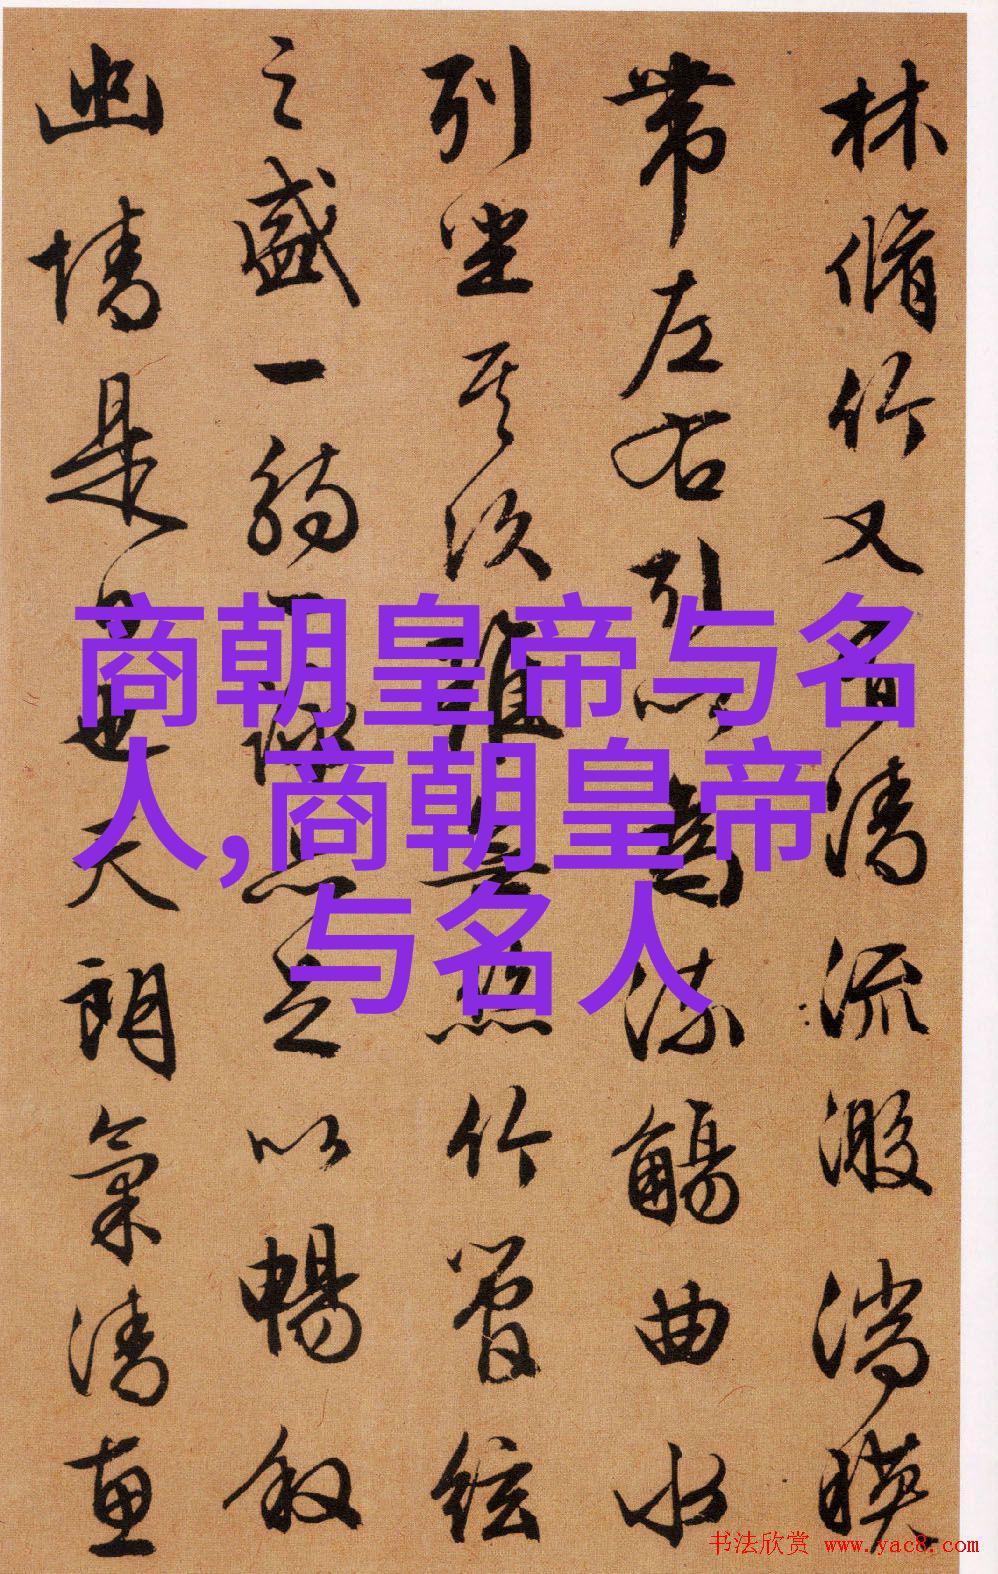 林脩竹又有清流激湍暎
帶左右引以為流觴曲水
列坐其次雖無絲竹管絃
之盛一觴一詠亦足以暢叙
幽情是日也天朗氣清惠
商朝皇帝与名
人,商朝皇帝
与名人
书法欣赏 www.yac8.com